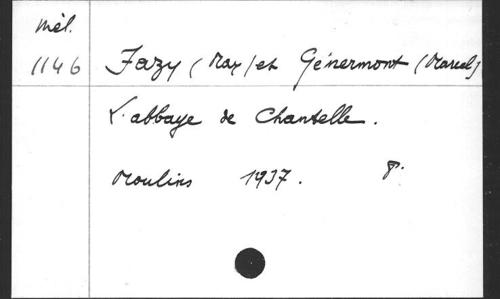 Mél.
1146 Fazy (Max) et Génermont (Marcel)
L'abbaye de Chantelle.
Moulins 1937. 8°